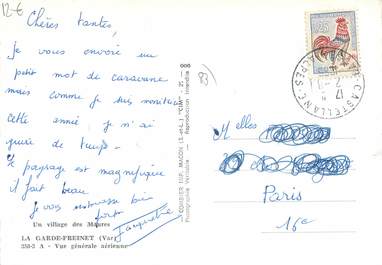 12€
Chères tantes,
je vous envoie un
petit mot de caravane
mais comme je suis monitrice
cette année je n'ai
guère de temps.
Le paysage est magnifique
il fait beau.
je vous embrasse bien
fort
Jacqueline
Un village des Maures
LA GARDE-FREINET (Var)
Vue générale aérienne
COMBIER IMP. MACON (S.-et-L.) "CIM"
Photographie Véritable - Reproduction interdite
CASTELLANE
ALPES
Melles
Paris
16e